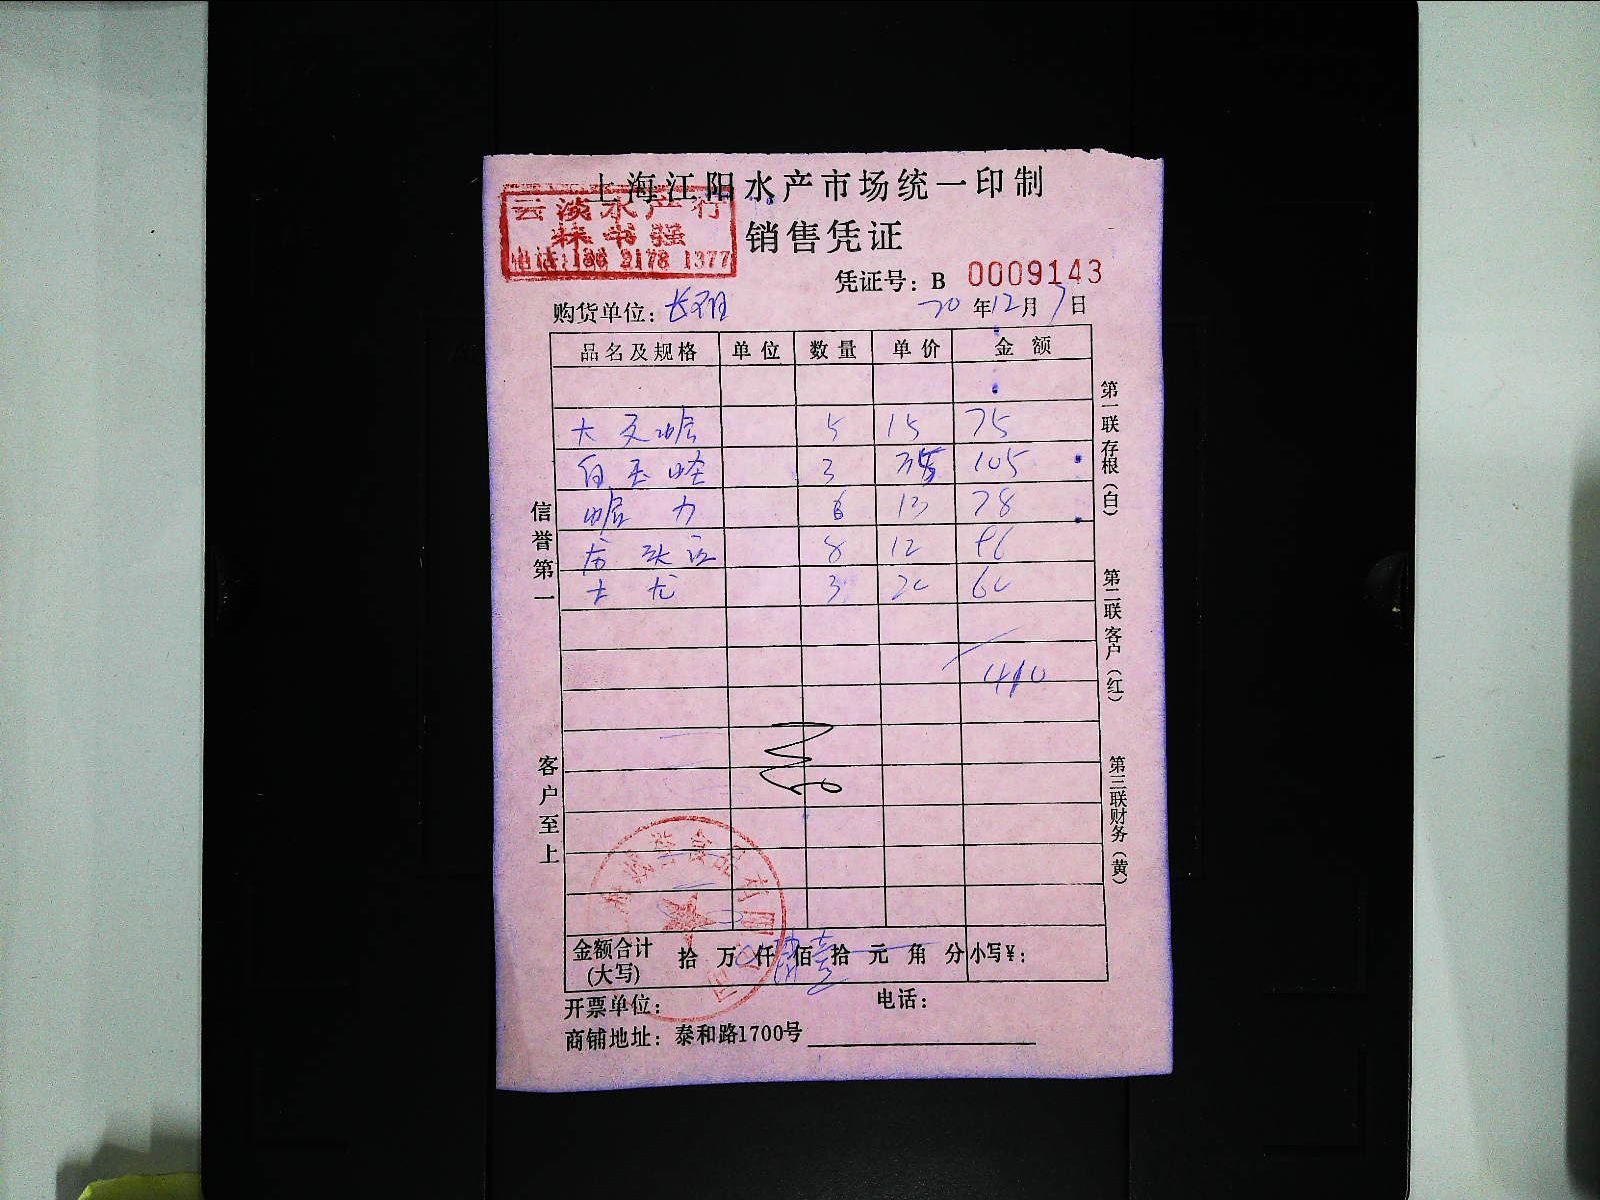 上海江阳水产市场统一印制
云淡水产行
林书强
电话:136 2178 1377
销售凭证
凭证号：B 0009143
购货单位：
20年12月7日
品名及规格 单位 数量 单价 金额
大文蛤 5 15 75
白玉蛏 3 35 105
6 13 78
8 12 96
3 20 60
410
信誉第一
客户至上
第一联存根（白）
第二联客户（红）
第三联财务（黄）
金额合计（大写） 拾 万 仟 肆 佰 壹 拾 元 角 分 小写¥：
开票单位： 电话：
商铺地址：泰和路1700号